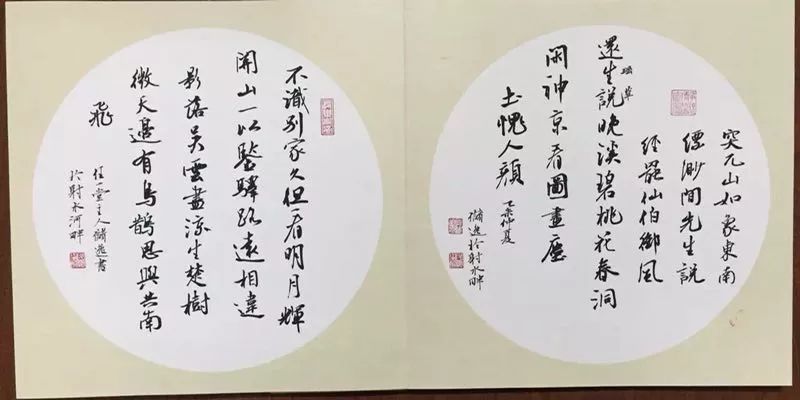 突兀山如象東南
縹渺間先生說
經罷仙伯御風
還生說晚溪碧桃花春洞
瑤草
閑神京看圖畫塵
土愧人顏
仲夏
儲逸於射水畔
不識別家久但看明月輝
關山一以鑒驛路遠相違
影落吳雲盡涼生楚樹
微天邊有烏鵲思與共南
飛
任一堂主人儲逸書
於射水河畔